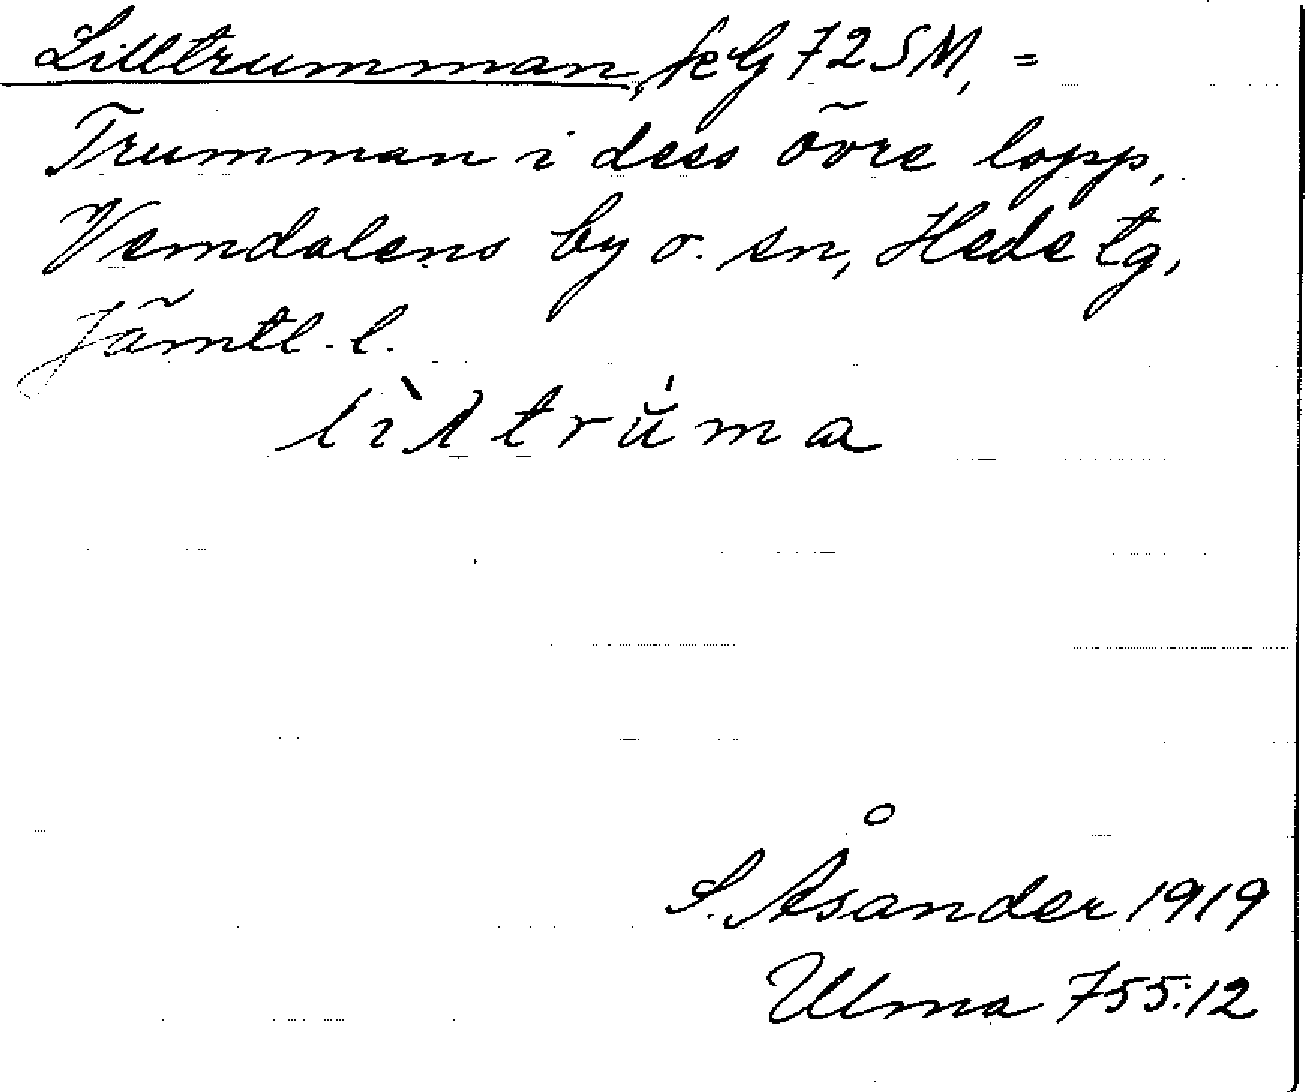 Lilltrumman, 72SM, =
Trumman i dess övre lopp,
Vemdalens by o. sn, Hede tg,
Jämtl. l.
S. Åsander 1919
Ulma 755:12